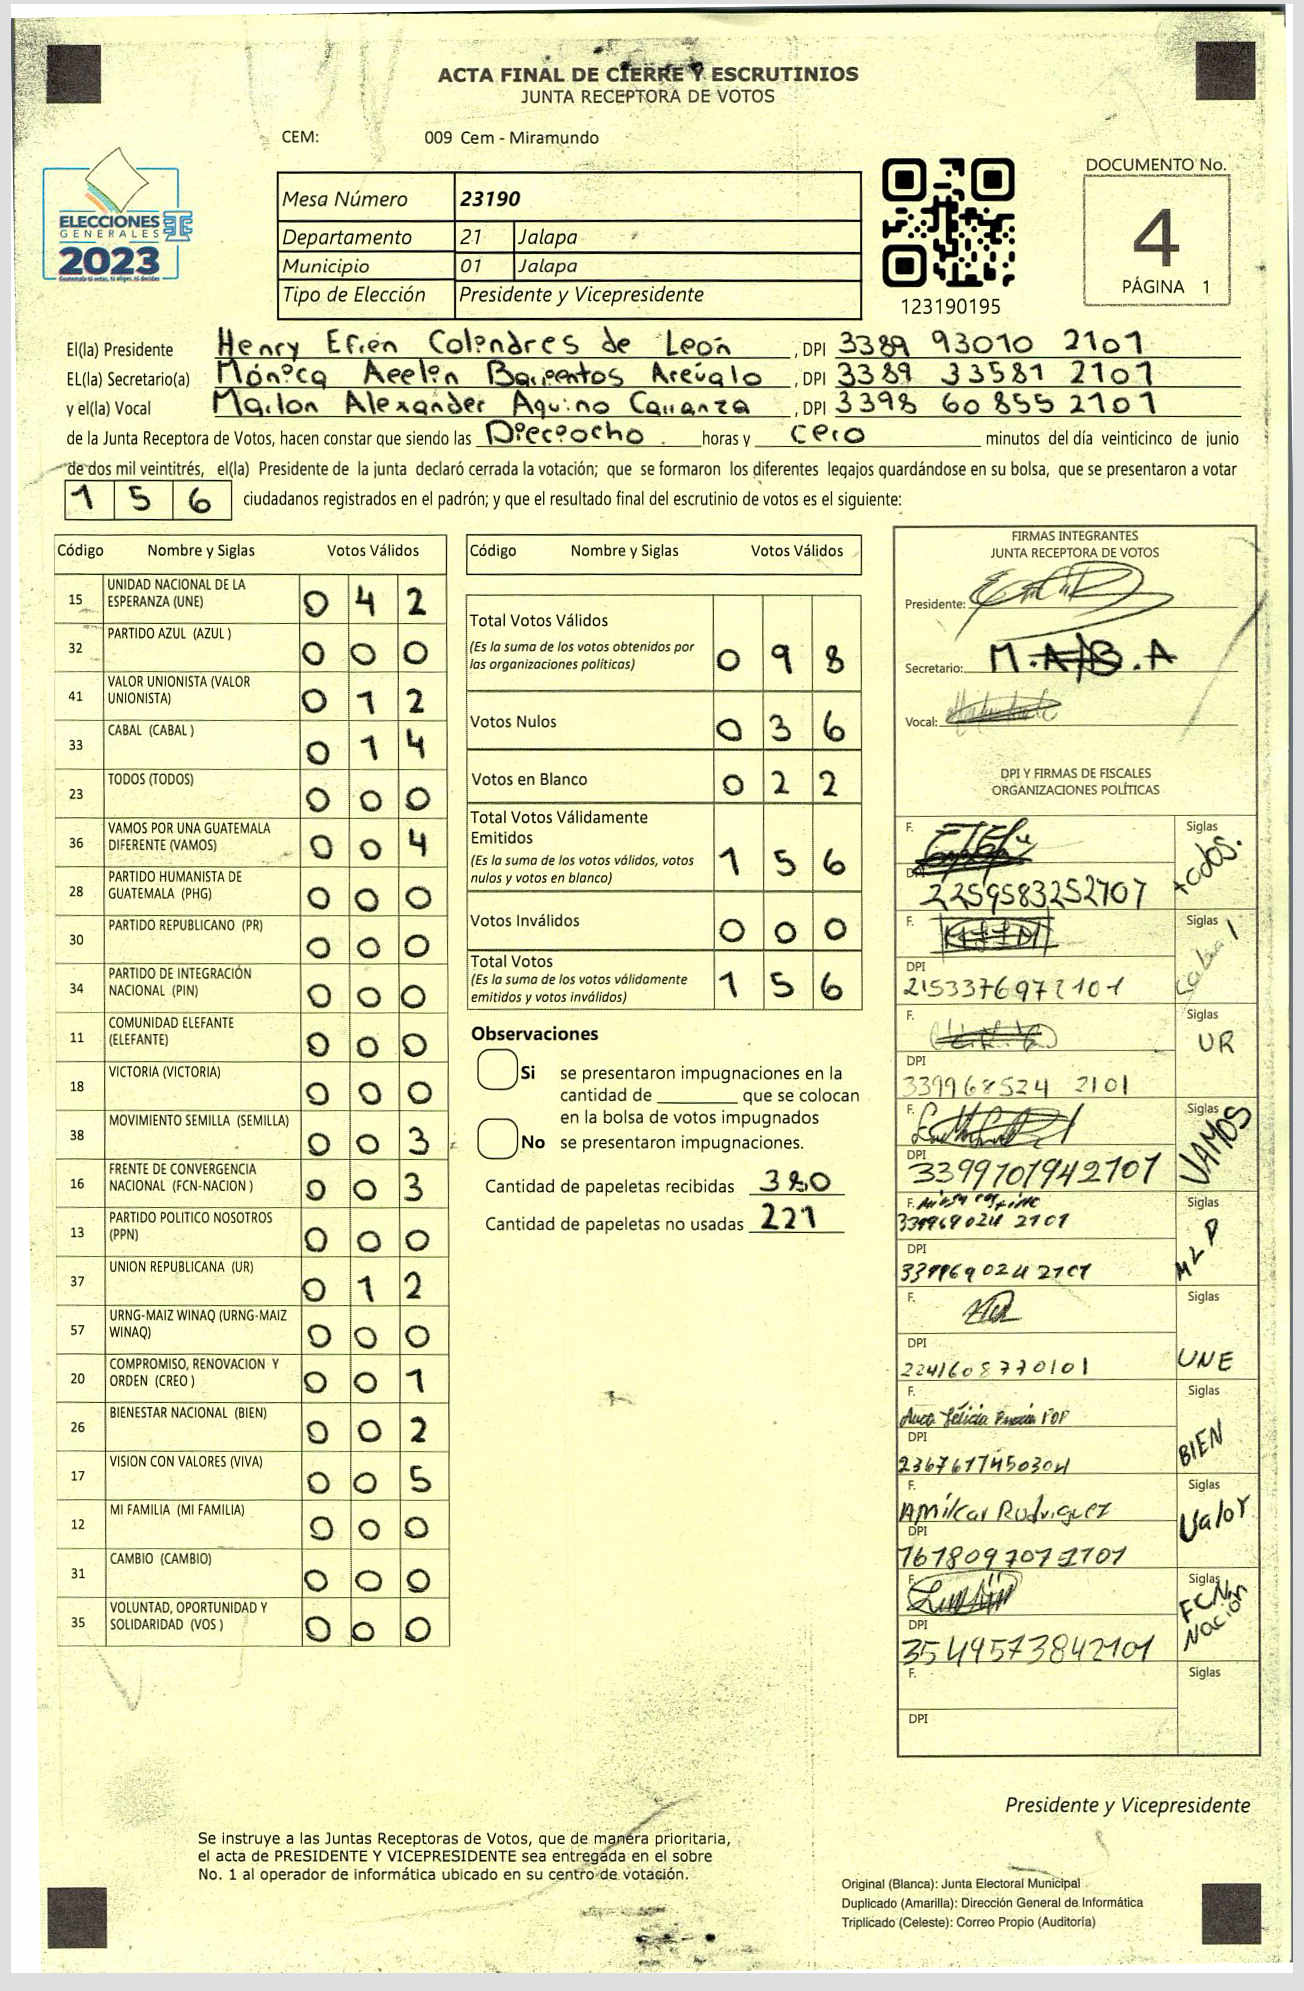 ACTA FINAL DE CIERRE Y ESCRUTINIOS
JUNTA RECEPTORA DE VOTOS
CEM: 009 Cem - Miramundo
ELECCIONES
GENERALES
2023
Mesa Número 23190
Departamento 21 Jalapa
Municipio 01 Jalapa
Tipo de Elección Presidente y Vicepresidente
123190195
DOCUMENTO No.
4
PÁGINA 1
El(la) Presidente Henry Efien Colendres de León , DPI 3389 93010 2101
EL(la) Secretario(a) Mónica Aeelin Barrientos Arévalo , DPI 3389 33581 2101
y el(la) Vocal Marlon Alexander Aquino Carranza , DPI 3398 60855 2101
de la Junta Receptora de Votos, hacen constar que siendo las Dieciocho horas y cero minutos del día veinticinco de junio
de dos mil veintitrés, el(la) Presidente de la junta declaró cerrada la votación; que se formaron los diferentes legajos guardándose en su bolsa, que se presentaron a votar
1 5 6 ciudadanos registrados en el padrón; y que el resultado final del escrutinio de votos es el siguiente:
Código Nombre y Siglas Votos Válidos
15 UNIDAD NACIONAL DE LA ESPERANZA (UNE) 0 4 2
32 PARTIDO AZUL (AZUL ) 0 0 0
41 VALOR UNIONISTA (VALOR UNIONISTA) 0 1 2
33 CABAL (CABAL ) 0 1 4
23 TODOS (TODOS) 0 0 0
36 VAMOS POR UNA GUATEMALA DIFERENTE (VAMOS) 0 0 4
28 PARTIDO HUMANISTA DE GUATEMALA (PHG) 0 0 0
30 PARTIDO REPUBLICANO (PR) 0 0 0
34 PARTIDO DE INTEGRACIÓN NACIONAL (PIN) 0 0 0
11 COMUNIDAD ELEFANTE (ELEFANTE) 0 0 0
18 VICTORIA (VICTORIA) 0 0 0
38 MOVIMIENTO SEMILLA (SEMILLA) 0 0 3
16 FRENTE DE CONVERGENCIA NACIONAL (FCN-NACION ) 0 0 3
13 PARTIDO POLITICO NOSOTROS (PPN) 0 0 0
37 UNION REPUBLICANA (UR) 0 1 2
57 URNG-MAIZ WINAQ (URNG-MAIZ WINAQ) 0 0 0
20 COMPROMISO, RENOVACION Y ORDEN (CREO ) 0 0 1
26 BIENESTAR NACIONAL (BIEN) 0 0 2
17 VISION CON VALORES (VIVA) 0 0 5
12 MI FAMILIA (MI FAMILIA) 0 0 0
31 CAMBIO (CAMBIO) 0 0 0
35 VOLUNTAD, OPORTUNIDAD Y SOLIDARIDAD (VOS ) 0 0 0
Código Nombre y Siglas Votos Válidos
Total Votos Válidos 0 9 8
(Es la suma de los votos obtenidos por
las organizaciones políticas)
Votos Nulos 0 3 6
Votos en Blanco 0 2 2
Total Votos Válidamente
Emitidos 1 5 6
(Es la suma de los votos válidos, votos
nulos y votos en blanco)
Votos Inválidos 0 0 0
Total Votos 1 5 6
(Es la suma de los votos válidamente
emitidos y votos inválidos)
Observaciones
Si se presentaron impugnaciones en la
cantidad de ________ que se colocan
en la bolsa de votos impugnados
No se presentaron impugnaciones.
Cantidad de papeletas recibidas
Cantidad de papeletas no usadas 221
FIRMAS INTEGRANTES
JUNTA RECEPTORA DE VOTOS
Presidente:
Secretario: M.A.B.A
Vocal:
DPI Y FIRMAS DE FISCALES
ORGANIZACIONES POLÍTICAS
F. Siglas todos.
DPI 2259583252107
F. Siglas Cabal
DPI 2153376972101
F. Siglas UR
DPI 339968524 2101
F. Siglas VAMOS
DPI 3399701942101
F. Siglas MLP
339969024 2101
DPI 339969024 2101
F. Siglas UNE
DPI 2241608770101
F. Siglas BIEN
DPI 2367617450304
F. Amilcar Rodriguez Siglas Valor
DPI 1678097072101
F. Siglas FCN Nación
DPI 3549573842101
F. Siglas
DPI
Presidente y Vicepresidente
Se instruye a las Juntas Receptoras de Votos, que de manera prioritaria,
el acta de PRESIDENTE Y VICEPRESIDENTE sea entregada en el sobre
No. 1 al operador de informática ubicado en su centro de votación.
Original (Blanca): Junta Electoral Municipal
Duplicado (Amarilla): Dirección General de Informática
Triplicado (Celeste): Correo Propio (Auditoría)